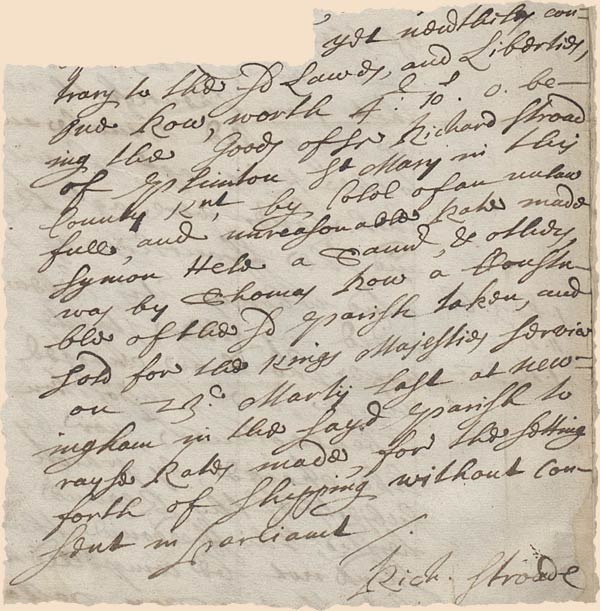 yet con-
trary to the sd Lawes, and Liberties,
one Kow, worth 4.l 10.s 0. be-
ing the Goods of Sr Richard Strood
of Plimton St Mary in this
County Knt, by Coloł of an unlaw
full, and unreasonable Rate made
Symon Hele a & others
was by Thomas Kow a Consta-
ble of the sd Parish taken, and
sold for the Kings Majesties Service
on 23.o Martij last at new-
ingham in the sayd Parish to
rayse Rates made for the setting
forth of Shipping without con-
sent in Parliamt /
Rich. Strode